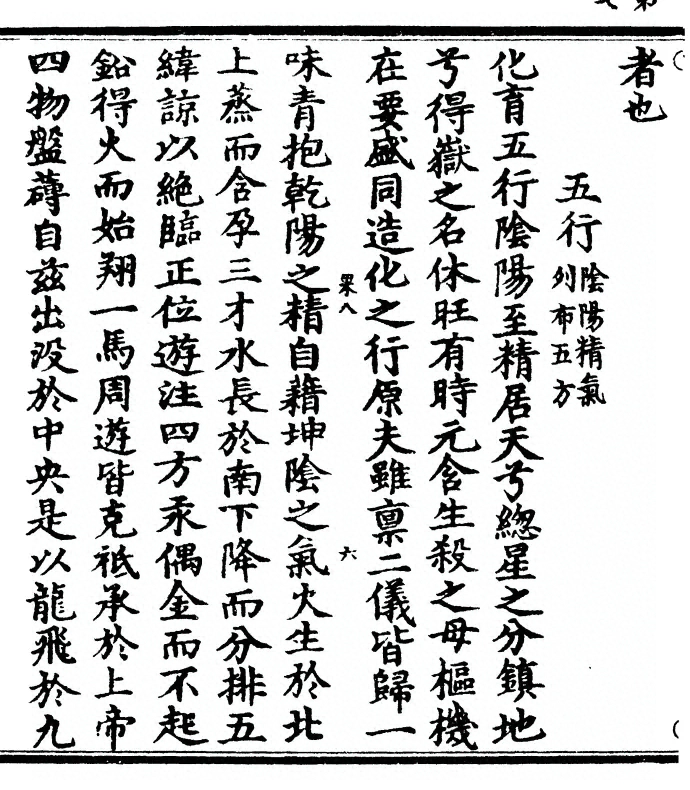 者也
五行陰陽精氣列布五方
化育五行陰陽至精居天兮緫星之分鎮地
兮得嶽之名休旺有時元含生殺之母樞機
在要盛同造化之行原夫雖禀二儀皆歸一
果八 六
味青抱乾陽之精自藉坤陰之氣火生於北
上蒸而含孕三才水長於南下降而分排五
緯諒以絶臨正位遊注四方汞偶金而不起
鉛得火而始翔一馬周遊皆克祗承於上帝
四物盤礴自兹出没於中央是以龍飛於九